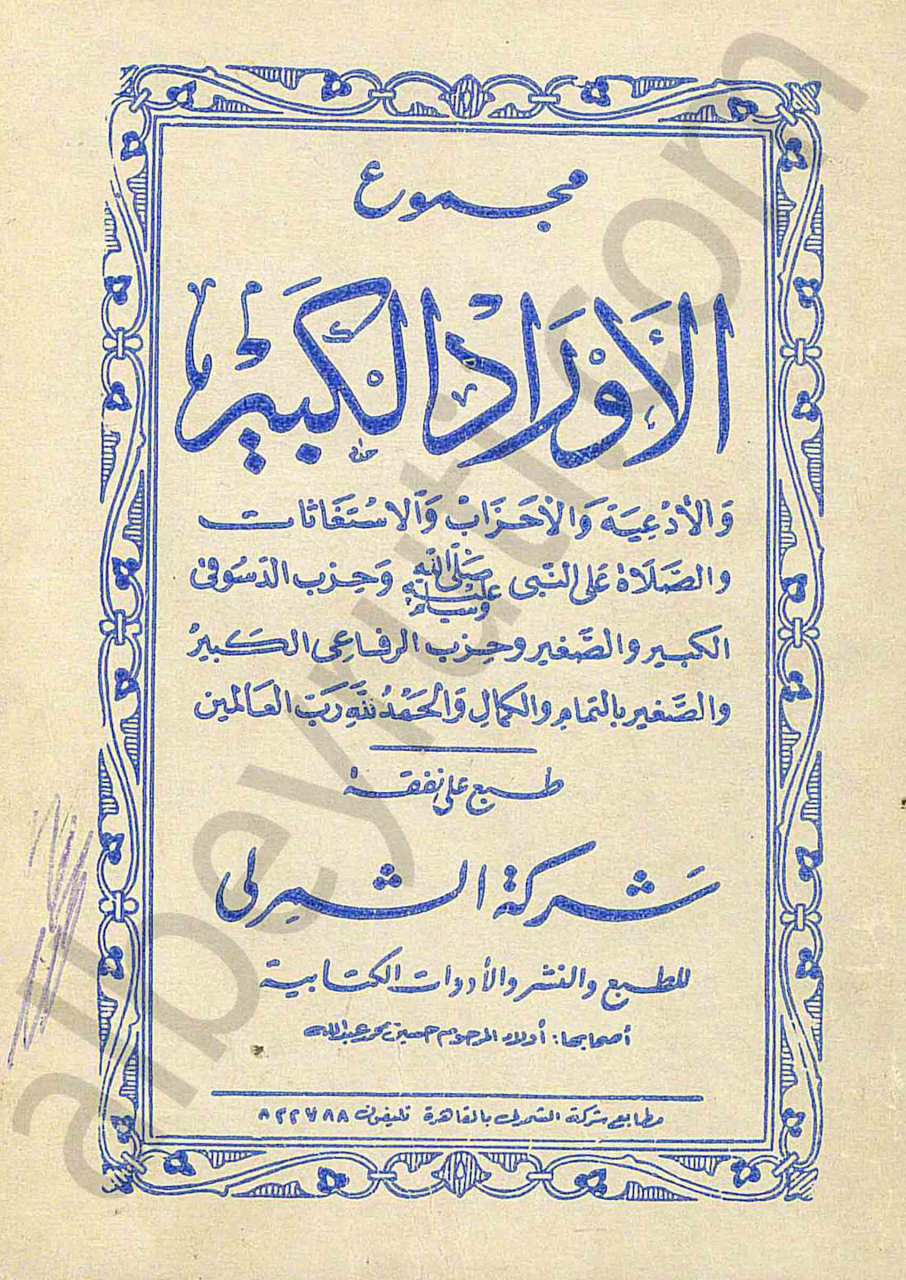 مجموع
الأَوْرَادُ الكَبِيرُ
وَالأَدْعِيَة وَالأَحْزَابْ وَالاسْتِغَاثَات
والصَّلَاة عَلى النَّبى صَلَّى اللهُ عَلَيْهِ وَسَلَّم وَحِزب الدسُوقى
الكبير والصَّغير وحِزب الرفاعِى الكَبِيرُ
والصَّغير بالتمام والكمال وَالْحَمْدُ للهِ رَبّ العَالَمين
طبع على نفقة
شركة الشمرلى
للطبع والنشر والأدوات الكتابية
أصحابها: أولاد المرحوم حسين محمد عبدالله
مطابع شركة الشمرلى بالقاهرة تليفون ٨٢٢٧٨٨
albeyruti.com